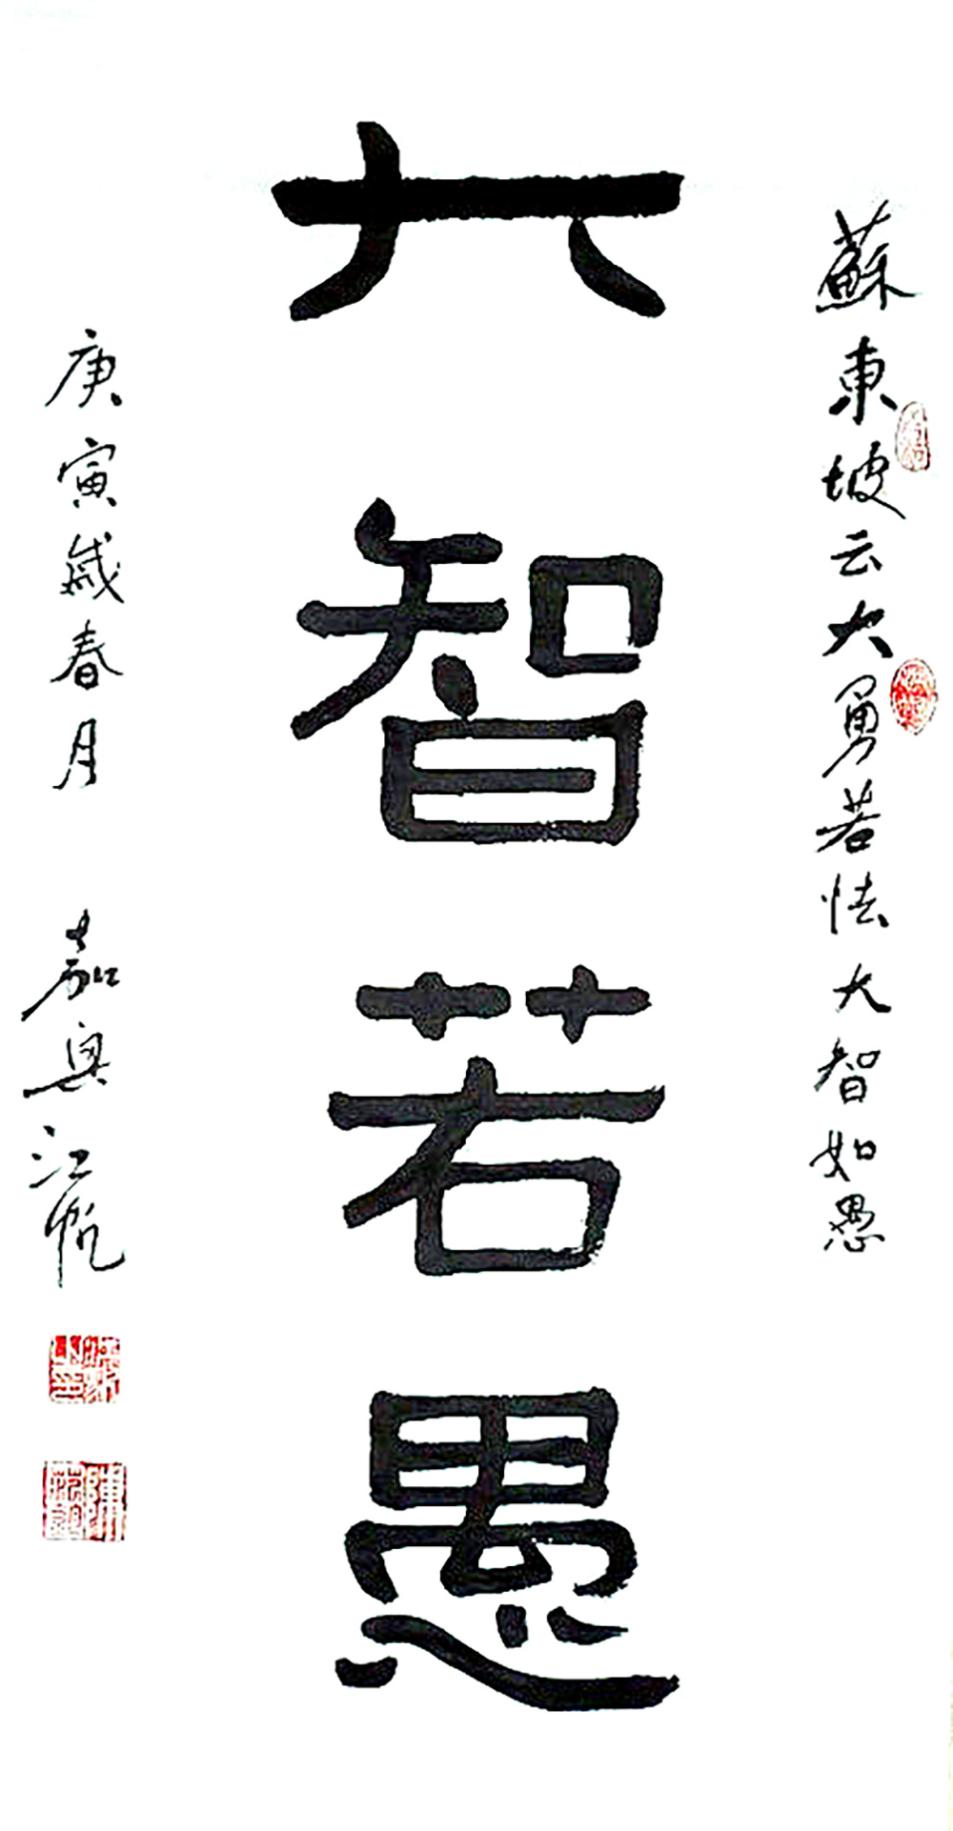 蘇東坡云大勇若怯大智如愚
大智若愚
庚寅歲春月 嘉興江帆